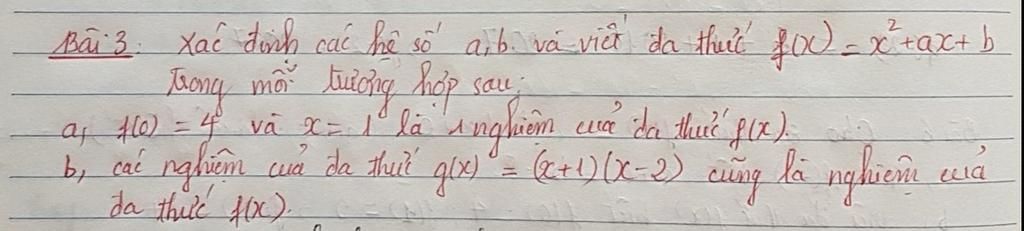 Bài 3: Xác định các hệ số a, b và viết đa thức f(x) = x² + ax + b
trong mỗi trường hợp sau:
a, f(0) = 4 và x = 1 là 1 nghiệm của đa thức f(x).
b, các nghiệm của đa thức g(x) = (x+1)(x-2) cũng là nghiệm của
đa thức f(x).